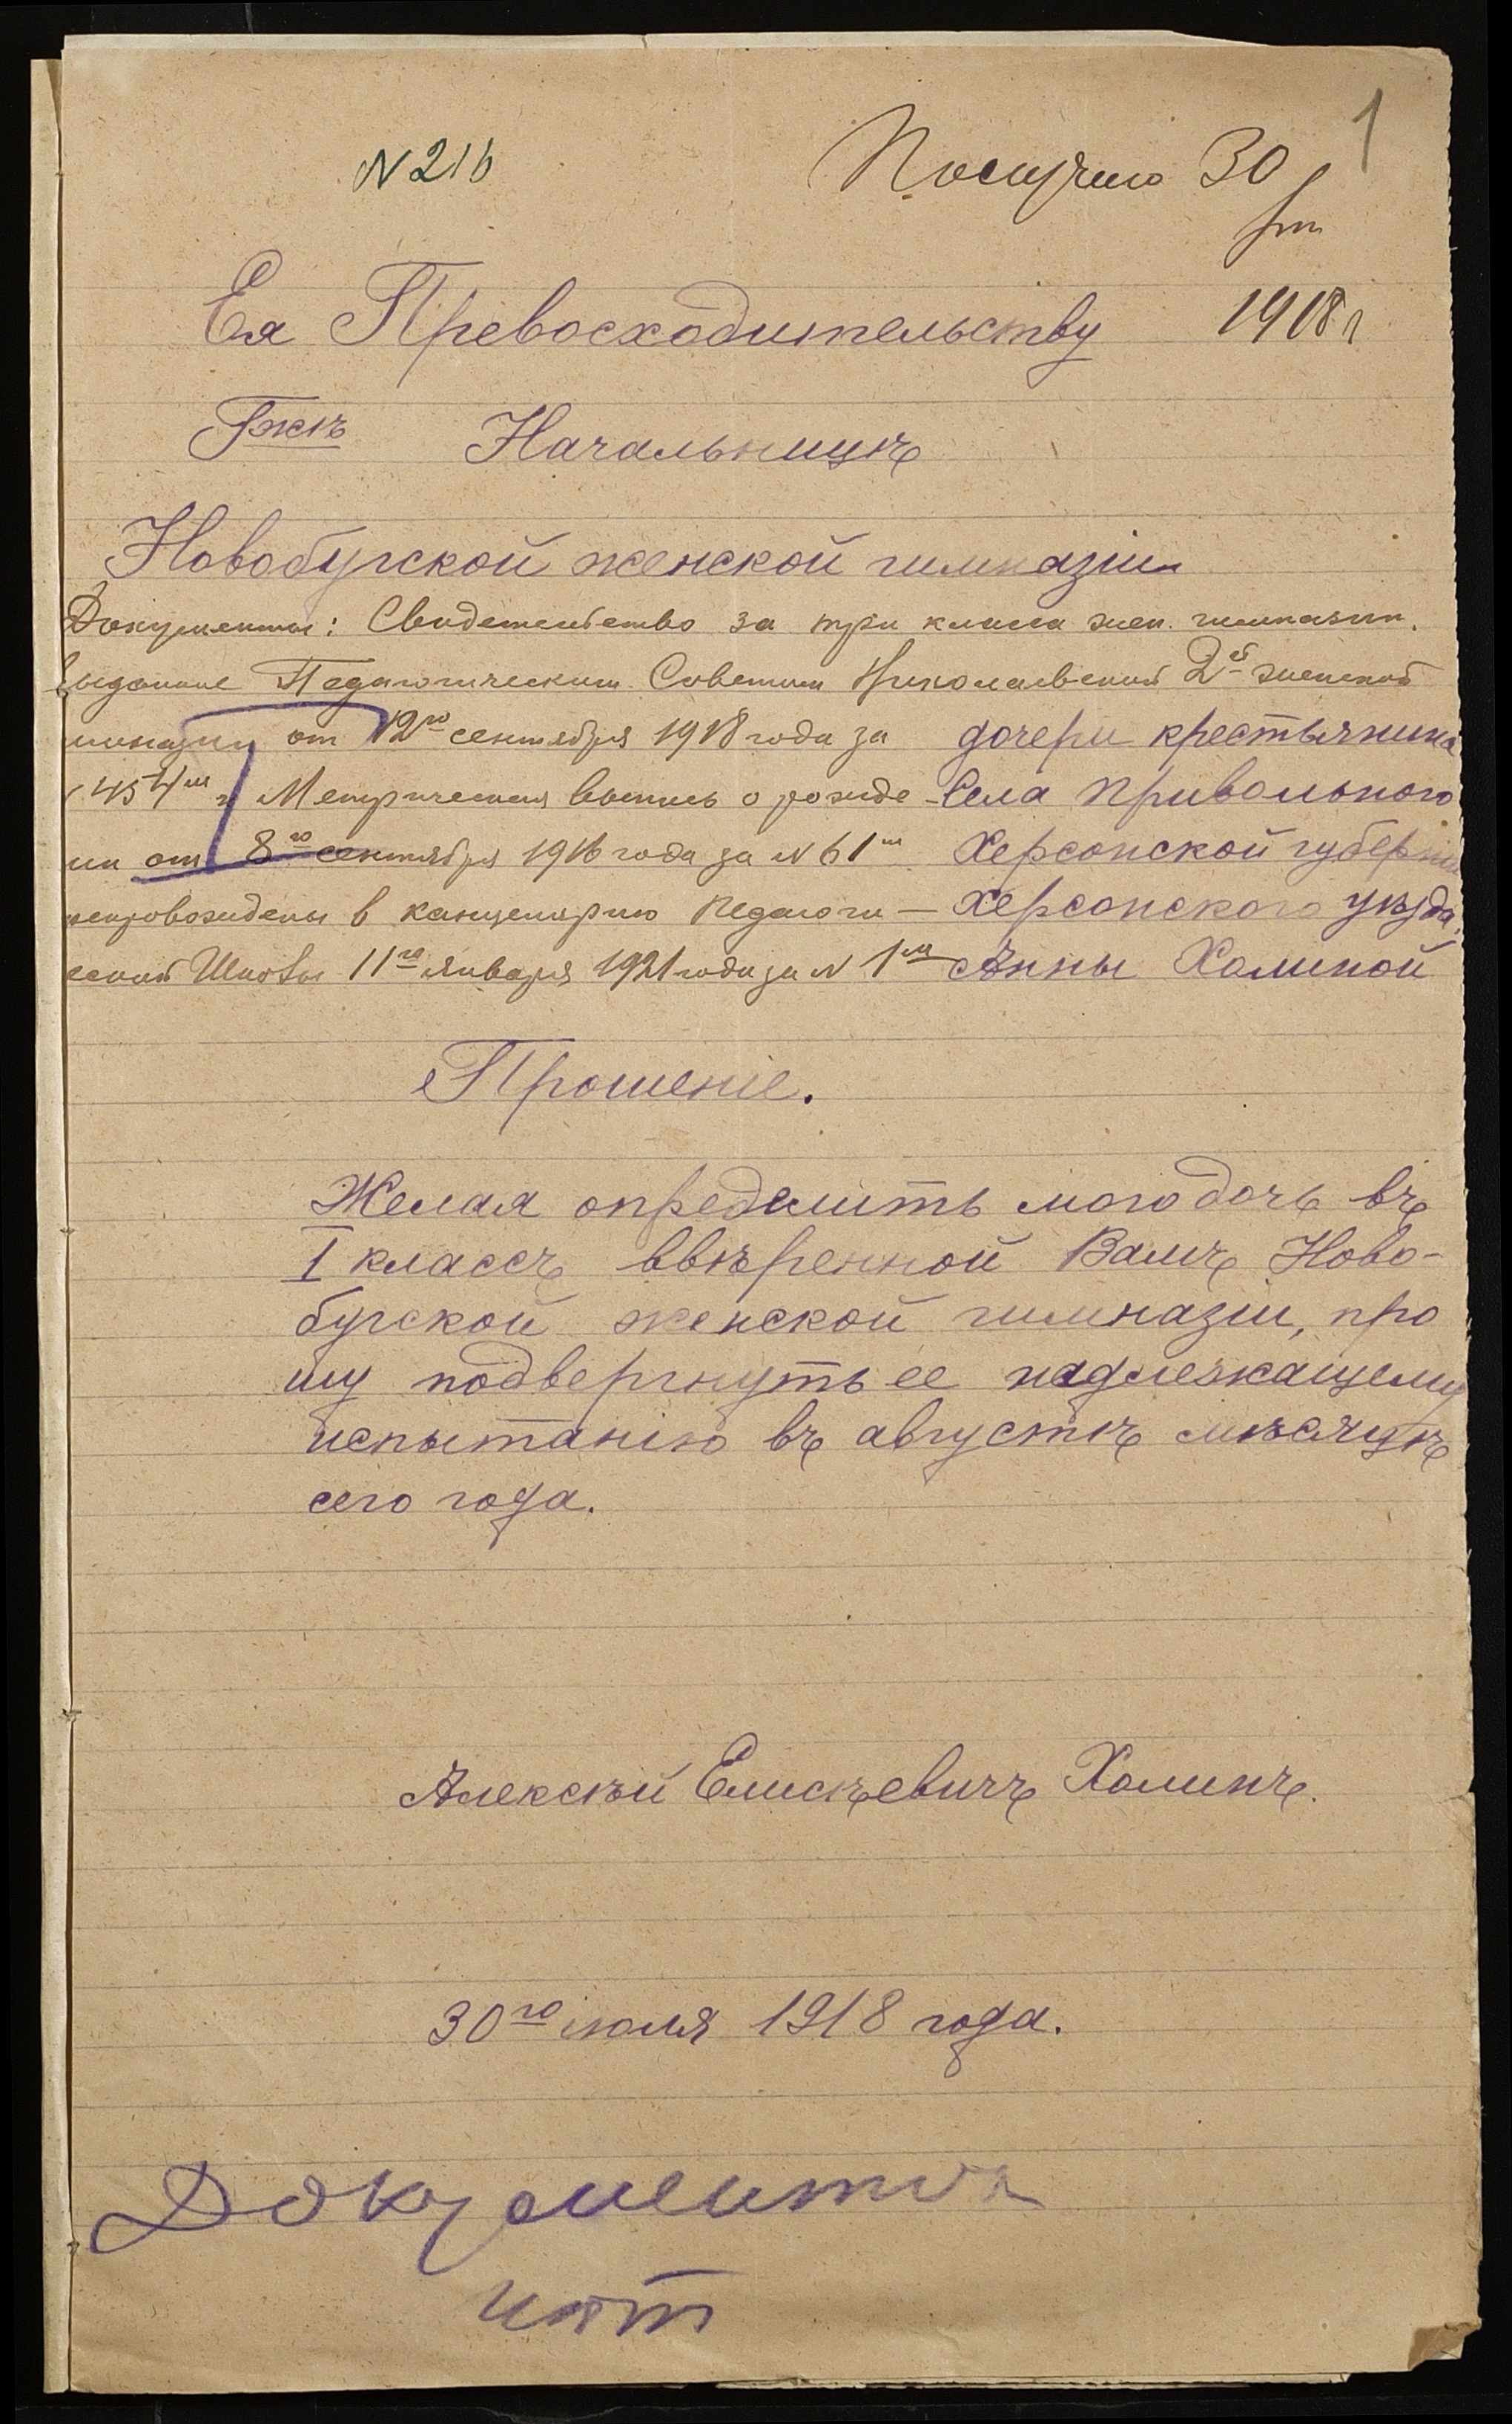 1
N 216
Поступило 30
1918 г
Ея Превосходительству
Гжѣ Начальницѣ
Новобугской женской гимназіи
Документы: Свидетельство за три класса жен. гимназии,
выданное Педагогическим Советом Николаевской 2й женской
гимназии от 12го сентября 1918 года за
454м и Метрическая выпись о рожде-
нии от 8го сентября 1916 года за N 61м
препровождены в канцелярию Педагоги-
ческой Школы 11го января 1921 года за N 1м
дочери крестьянина
села Привольного
Херсонской губерніи
Херсонского уѣзда,
Анны Халиной
Прошеніе.
Желая опредѣлить мою дочь въ
I классъ ввѣренной Вамъ Ново-
бугской женской гимназіи, про
шу подвергнуть ее надлежащему
испытанію въ августѣ мѣсяцѣ
сего года.
Алексѣй Елисѣевичъ Халинъ.
30го іюля 1918 года.
Документов
нѣт